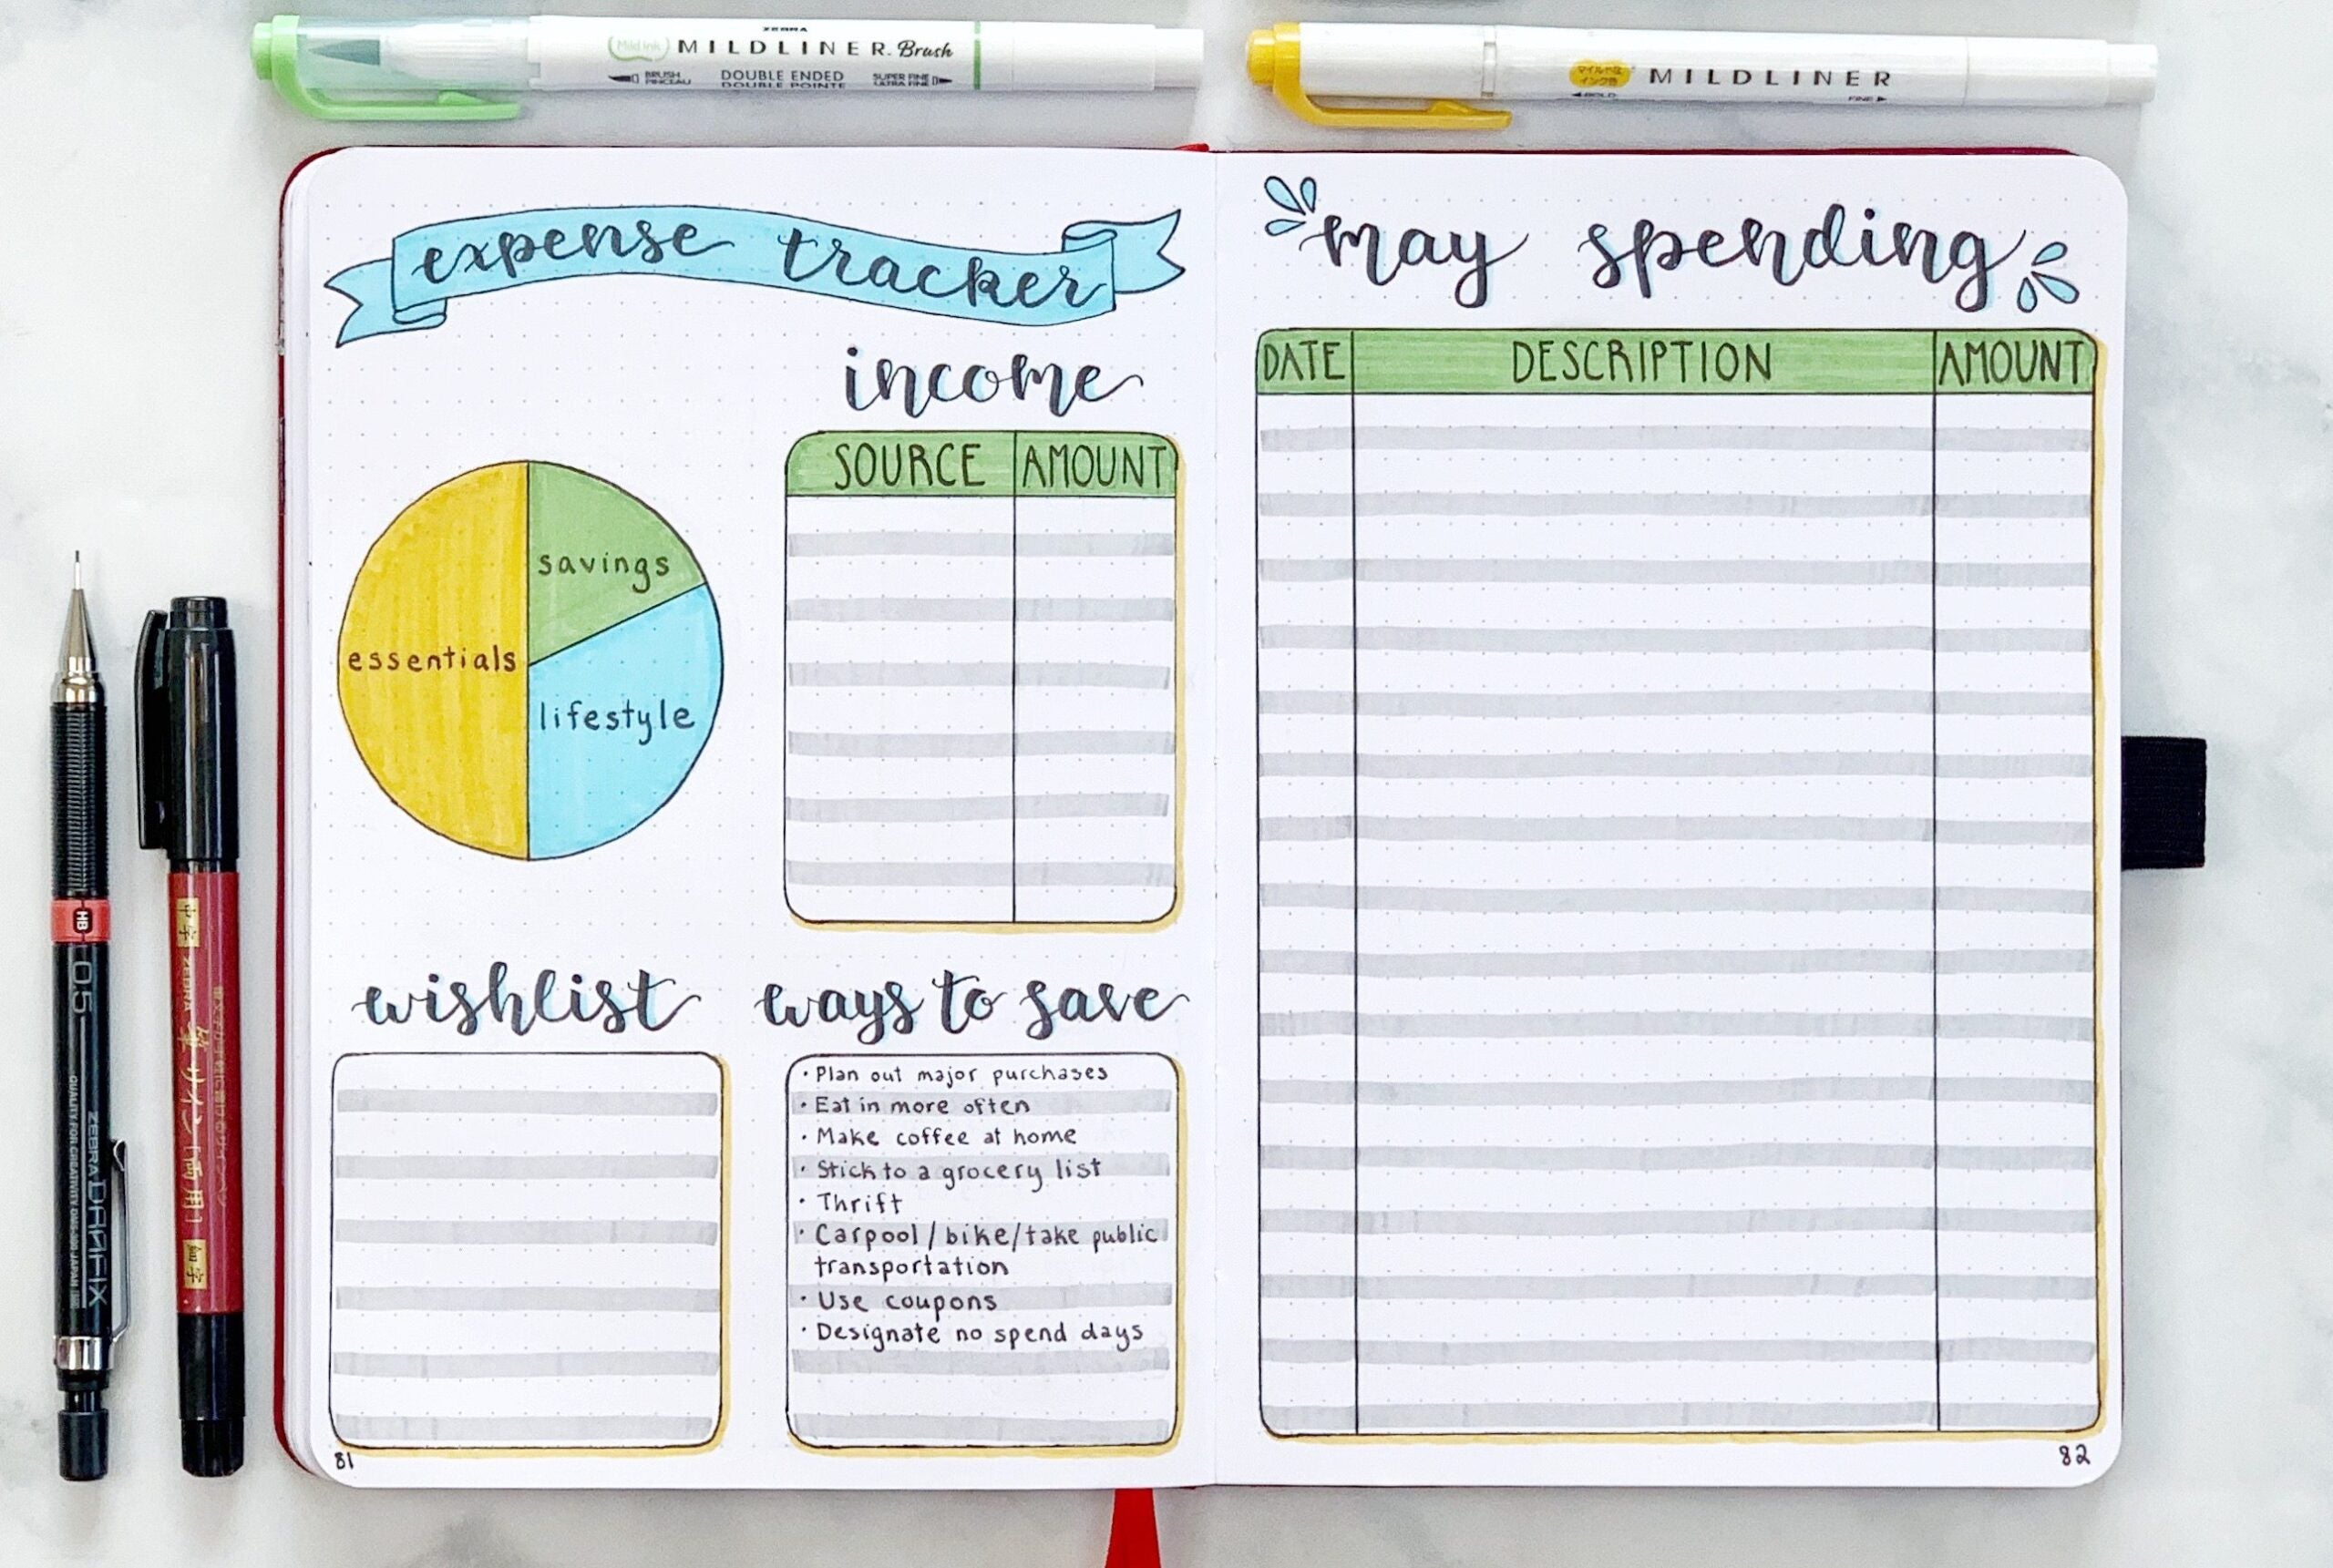 ZEBRA
Mild Ink MILDLINER. Brush
BRUSH DOUBLE ENDED SUPER FINE
PINCEAU DOUBLE POINTE ULTRA FINE
マイルドな
インク色 MILDLINER
◀BOLD FINE▶
expense tracker
income
SOURCE AMOUNT
savings
essentials
lifestyle
wishlist
ways to save
· Plan out major purchases
· Eat in more often
· Make coffee at home
· Stick to a grocery list
· Thrift
· Carpool / bike / take public
transportation
· Use coupons
· Designate no spend days
81
may spending
DATE DESCRIPTION AMOUNT
82
HB
0.5
ZEBRA DRAFIX
QUALITY FOR CREATIVITY
JAPAN
中字
ZEBRA 筆サイン〔両用〕
細字